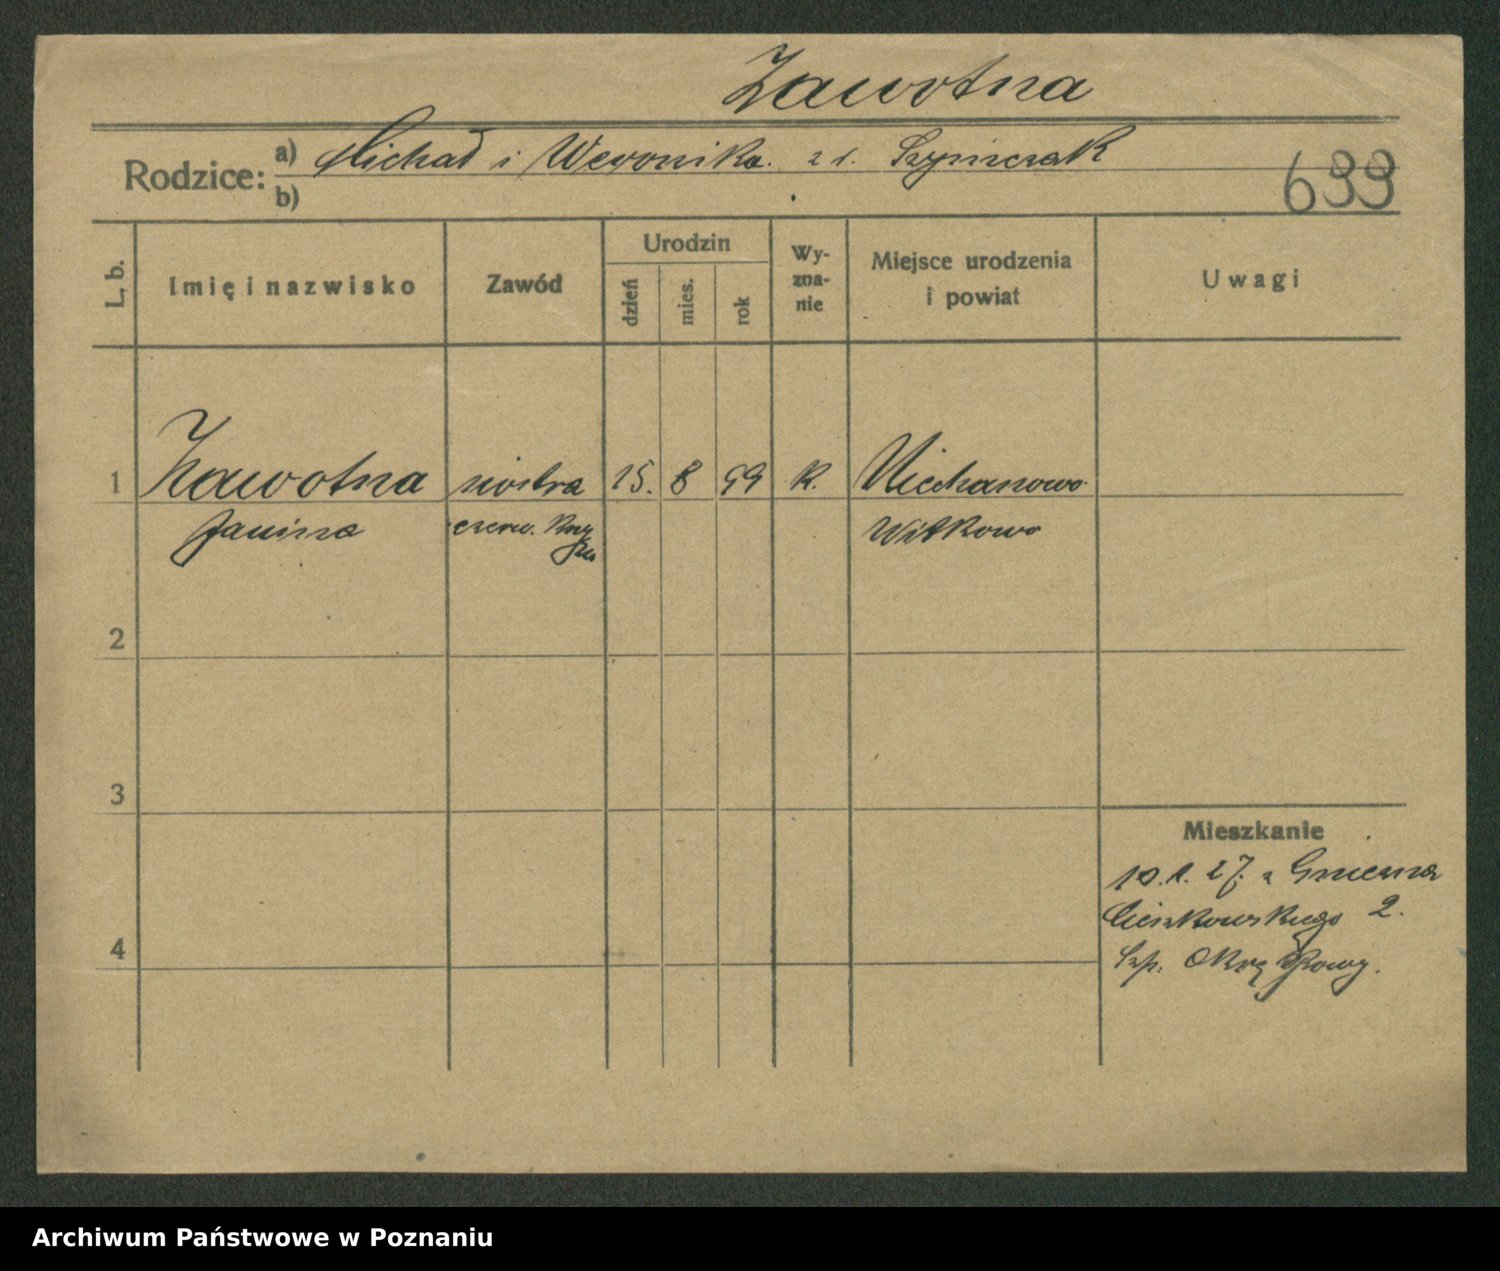 Zawotna
Rodzice: a) Michał i Weronika z d. Szymczak
b)
699
L. b.
Imię i nazwisko
Zawód
Urodzin
dzień
mies.
rok
Wy-
zna-
nie
Miejsce urodzenia
i powiat
Uwagi
1 Zawotna siostra 15. 8 99 k. Niechanowo
Janina czerw. Krzy
ża Witkowo
2
3
Mieszkanie
10.1.27. z Gniezna
Cieszkowskiego 2.
4
Szp. Okręgowy.
Archiwum Państwowe w Poznaniu